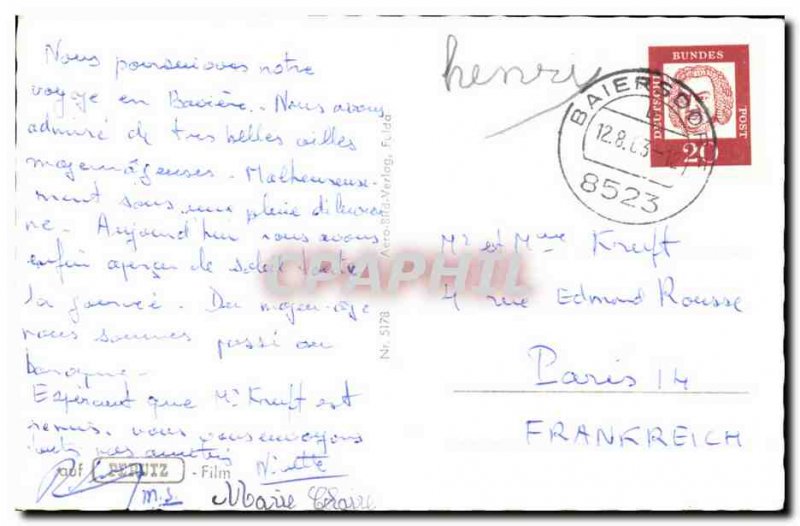 Nous poursuivons notre
voyage en Bavière. Nous avons
admiré de très belles villes
moyenâgeuses. Malheureuse-
ment sous une pluie diluvien
ne. Aujourd'hui nous avons
enfin aperçu le soleil toute
la journée. Du moyen-âge
nous sommes passé au
baroque.
Espérant que Mr Kruft est
remis, vous envoyons
toutes nos amitiés
Ninette
m.s.
Marie Claire
auf PERUTZ - Film
Nr. 5178 Aero-Bild-Verlag, Fulda
henry
BUNDES
POST
DEUTSCHE
20
BAIERSDORF
12.8.63-
8523
Mr et Mme Kruft
4 rue Edmond Rousse
Paris 14
FRANKREICH
CPAPHIL